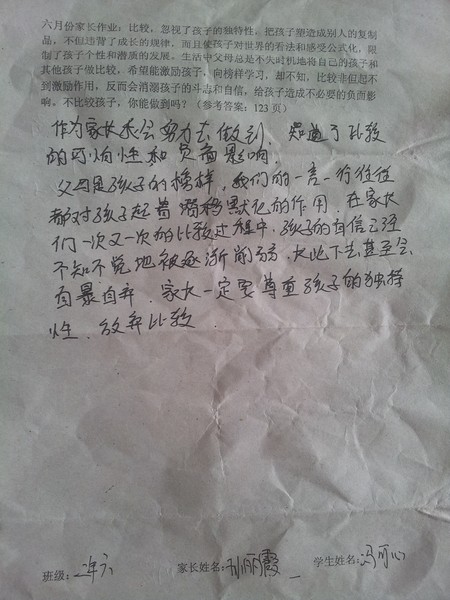 六月份家长作业：比较，忽视了孩子的独特性。把孩子塑造成别人的复制
品，不但违背了成长的规律，而且使孩子对世界的看法和感受公式化，限
制了孩子个性和潜质的发展。生活中父母总是不失时机地将自己的孩子和
其他孩子做比较，希望能激励孩子，向榜样学习，却不知，比较非但起不
到激励作用，反而会消溺孩子的斗志和自信，给孩子造成不必要的负面影
响。不比较孩子，你能做到吗？（参考答案：123 页）
作为家长我会努力去做到，知道了比较
的可怕性和负面影响。
父母是孩子的榜样，我们的一言一行往往
都对孩子起着潜移默化的作用。在家长
们一次又一次的比较过程中，孩子的自信已经
不知不觉地被逐渐削弱，长此下去甚至会
自暴自弃。家长一定要尊重孩子的独特
性，放弃比较
班级：二年六 家长姓名：孙丽霞 学生姓名：冯可心